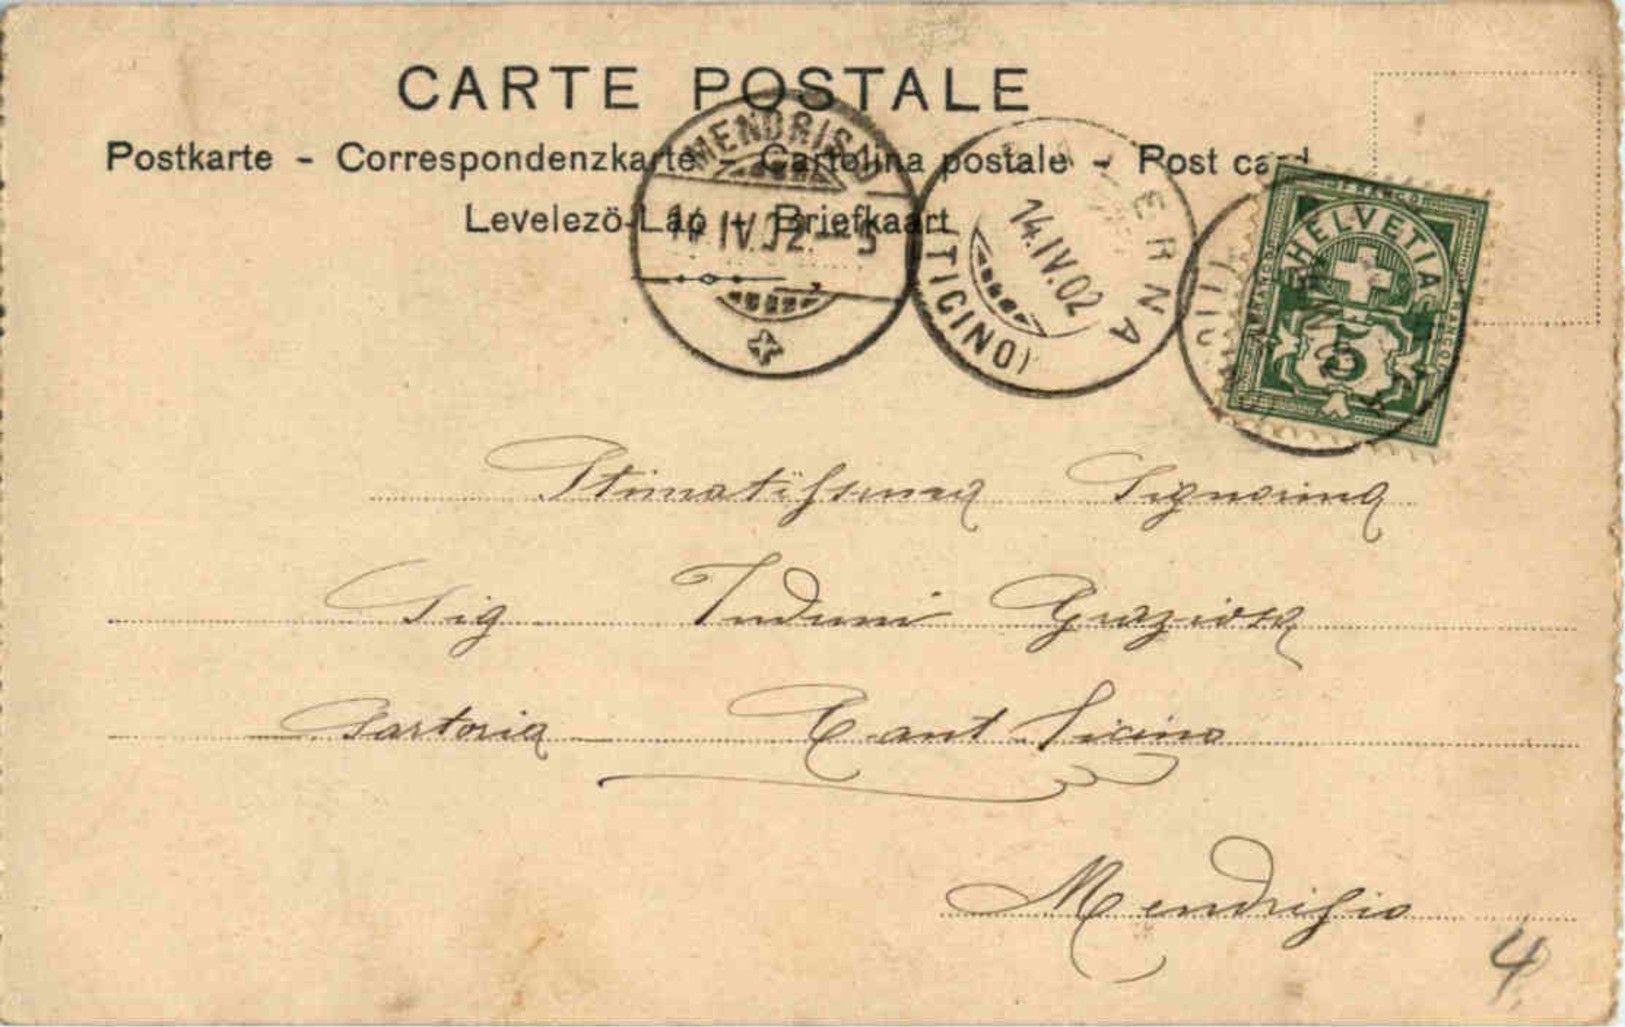 CARTE POSTALE
Postkarte - Correspondenzkarte - Cartolina postale - Post card
Levelezö-Lap - Briefkaart
MENDRISIO
14.IV.02. - 5
ERNA
14.IV.02
(TICINO)
FRANCO
HELVETIA
5
Stimatissima Signorina
Sig Induni Graziosa
Sartoria Cant Ticino
Mendrisio
4